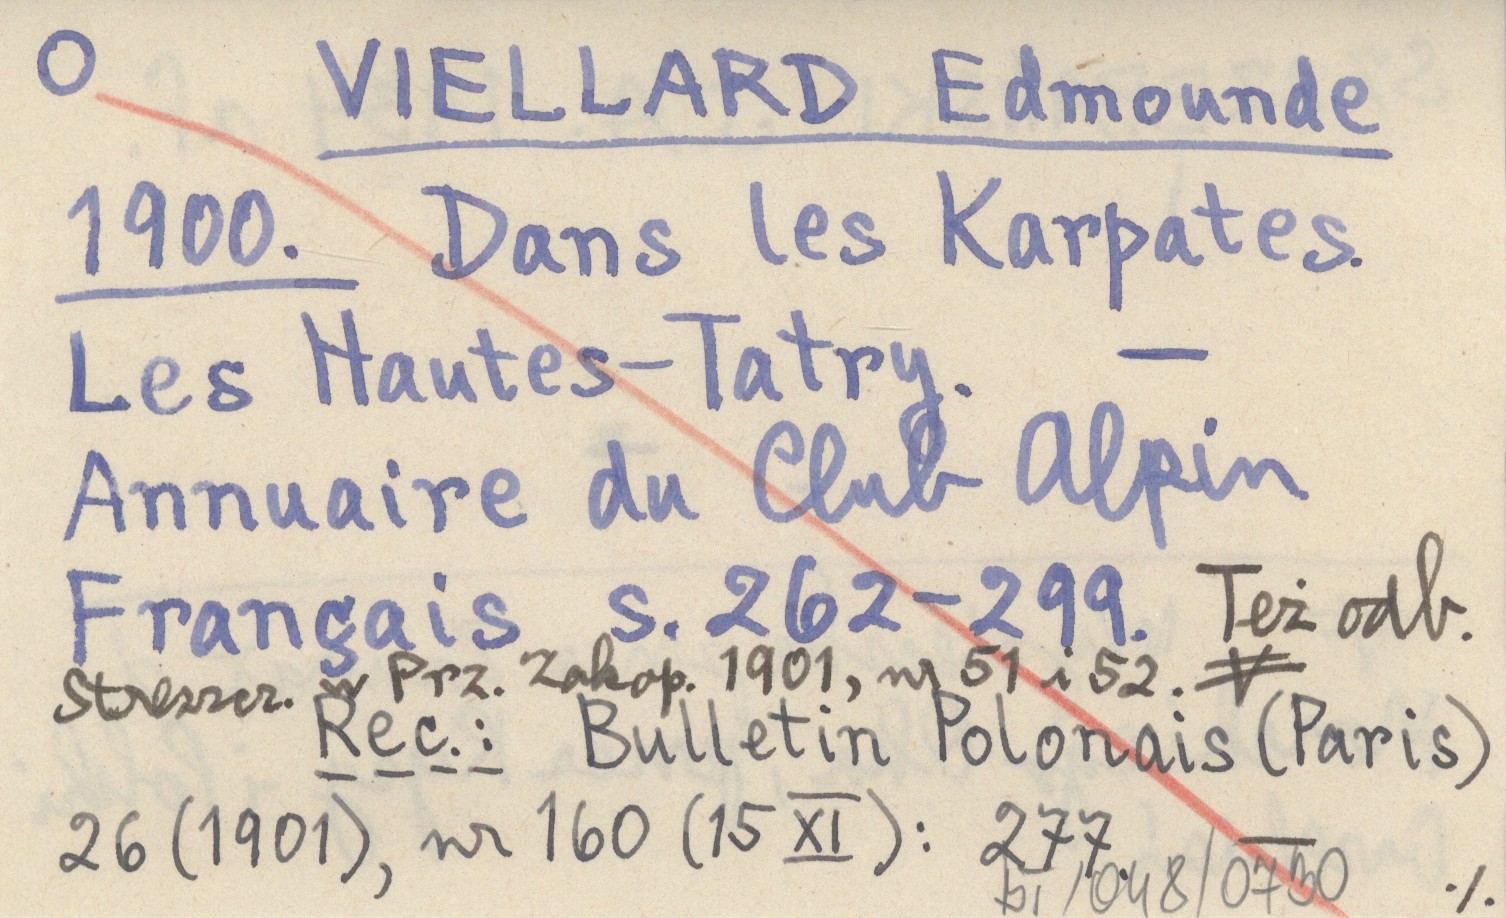 O VIELLARD Edmounde
1900. Dans les Karpates.
Les Hautes-Tatry. —
Annuaire du Club Alpin
Français s. 262-299. Też odb.
Streszcz. w Prz. Zakop. 1901, nr 51 i 52.
Rec.: Bulletin Polonais (Paris)
26 (1901), nr 160 (15 XI): 277. —
bi/048/0730 ./.